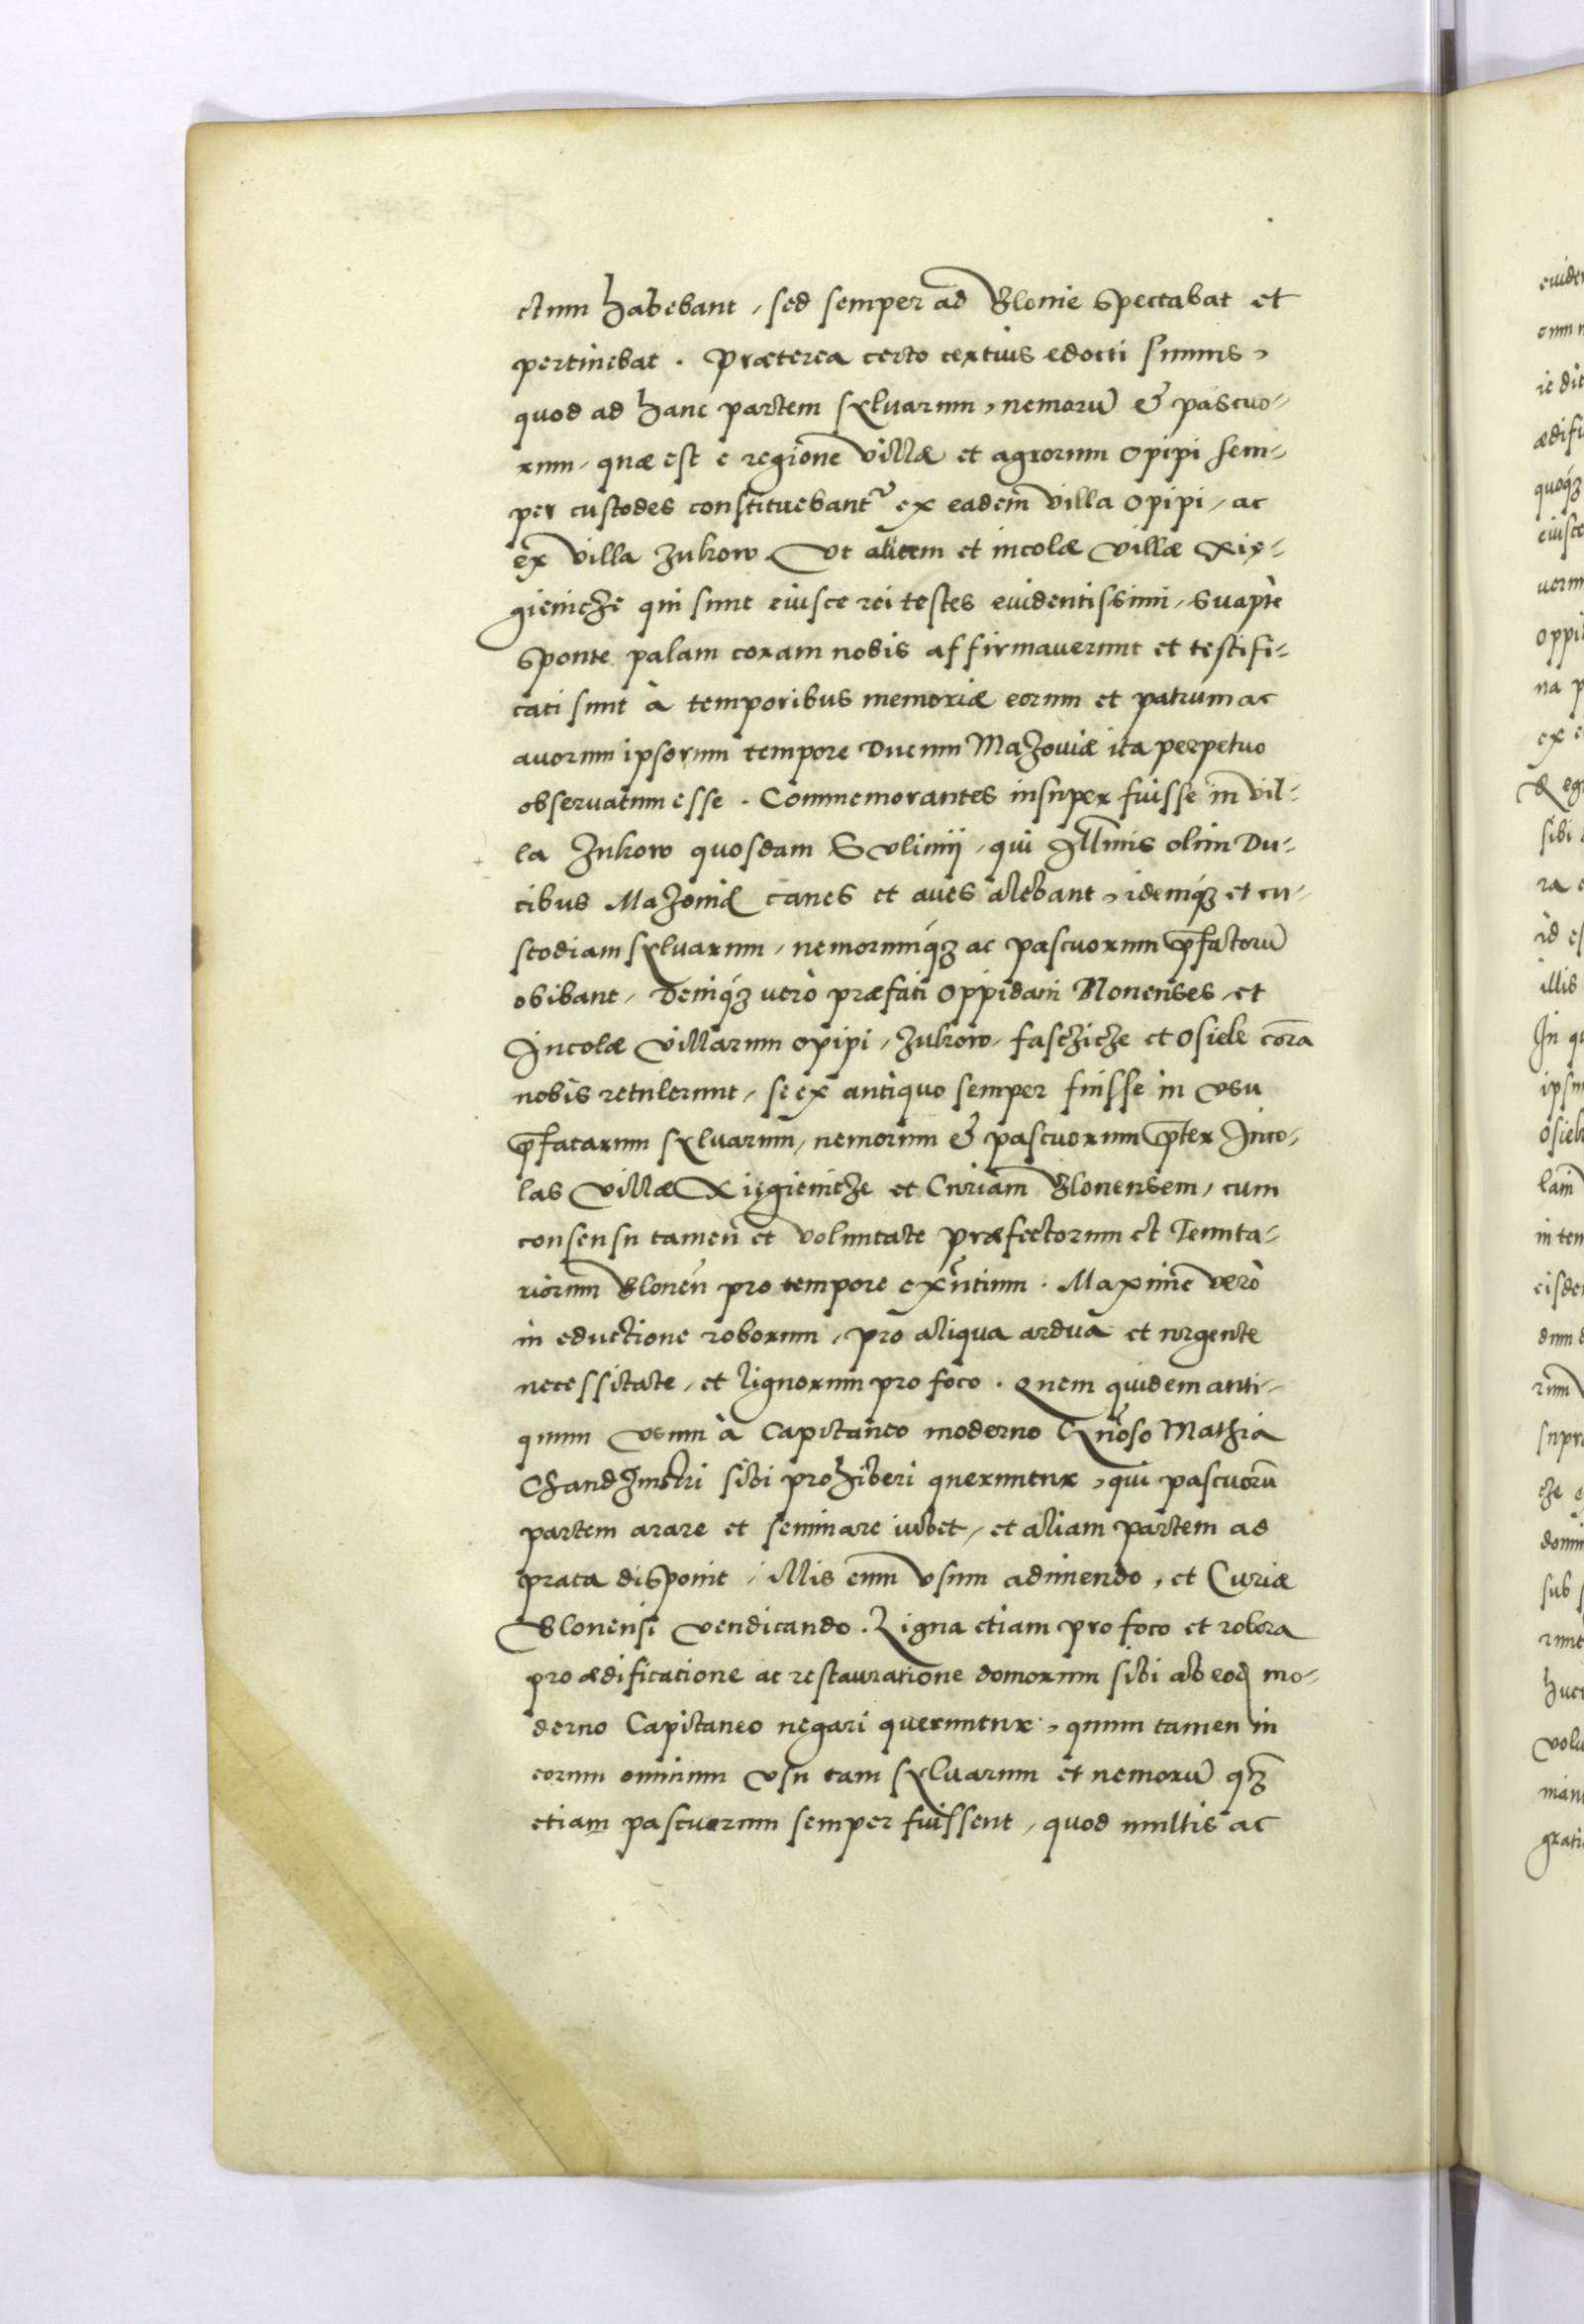 ctum habebant, sed semper ad Blonie spectabat et
pertinebat. Præterea certo certius edocti sumus,
quod ad hanc partem sylvarum, nemorū & pascuo-
rum, quæ est e regione villæ et agrorum Opipi sem-
per custodes constituebant~ ex eadem villa Opipi, ac
ex villa Zukow. Ut autem et incolæ villæ Xię-
gienicze qui sunt eiusce rei testes evidentissimi, suaptè
sponte palam coram nobis affirmaverunt et testifi-
cati sunt à temporibus memoriæ eorum et patrum ac
avorum ipsorum tempore Ducum Mazoviæ ita perpetuo
observatum esse. Commemorantes insuper fuisse in vil-
la Zukow quosdam Sulimij, qui Illmis olim Du-
cibus Mazoviæ canes et aves alebant, idemq́ꝫ et cu-
stodiam sylvarum, nemorumq́ꝫ ac pascuorum p̄fatorū
obibant, Deniq́ꝫ verò præfati Oppidani Blonenses, et
Incolæ villarum Opipi, Zukow, fasczicze et Osiek corā
nobis retulerunt, se ex antiquo semper fuisse in usu
p̄fatarum sylvarum, nemorum & pascuorum p̄ter Inco-
las villæ Xięgienicze et Curiam Blonensem, cum
consensu tamen et voluntate præfectorum et Tenuta-
riorum Blonen̄ pro tempore ex̄ntium. Maxime verò
in eductione roborum, pro aliqua ardua et urgente
necessitate, et lignorum pro foco. Quem quidem anti-
quum usum à Capitaneo moderno Gn̄oso Mathia
sibi prohiberi queruntur, qui pascuorū
partem arare et seminare iubet, et aliam partem ad
prata disponit, illis eum usum adimendo, et Curiæ
Blonensi vendicando. Ligna etiam pro foco et robora
pro ædificatione ac restauratione domorum sibi ab eod mo-
derno Capitaneo negari queruntur, quum tamen in
eorum omnium usu tam sylvarum et nemorū q̄ꝫ
etiam pascuorum semper fuissent, quod multis ac